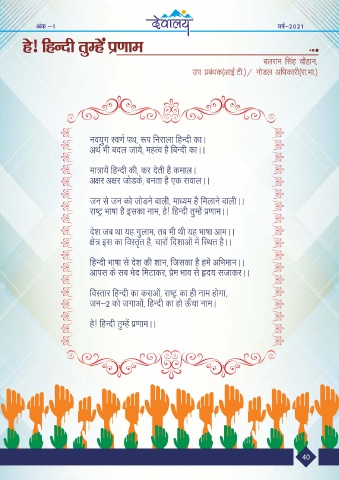 अंक –1
देवालय
वर्ष–2021
हे! हिन्दी तुम्हें प्रणाम
बलराम सिंह चौहान,
उप प्रबंधक(आई.टी.)/ नोडल अधिकारी(रा.भा.)
नवयुग स्वर्ण पथ, रूप निराला हिन्दी का।
अर्थ भी बदल जावे, महत्व है बिन्दी का।।
मात्रायें हिन्दी की, कर देती है कमाल।
अक्षर अक्षर जोडकें, बनता है एक सवाल।।
जन से जन को जोडने वाली, माध्यम है मिलाने वाली।।
राष्ट्र भाषा है इसका नाम, हे! हिन्दी तुम्हें प्रणाम।।
देश जब था यह गुलाम, तब भी थी यह भाषा आम।।
क्षेत्र इस का विस्तृत है, चारों दिशाओ में स्थित है।।
हिन्दी भाषा से देश की शान, जिसका है हमें अभिमान।।
आपस के सब भेद मिटाकर, प्रेम भाव से हृदय सजाकर।।
विस्तार हिन्दी का कराओं, राष्ट्र का ही नाम होगा,
जन–2 को जगाओं, हिन्दी का हो ऊँचा नाम।
हे! हिन्दी तुम्हें प्रणाम।।
40